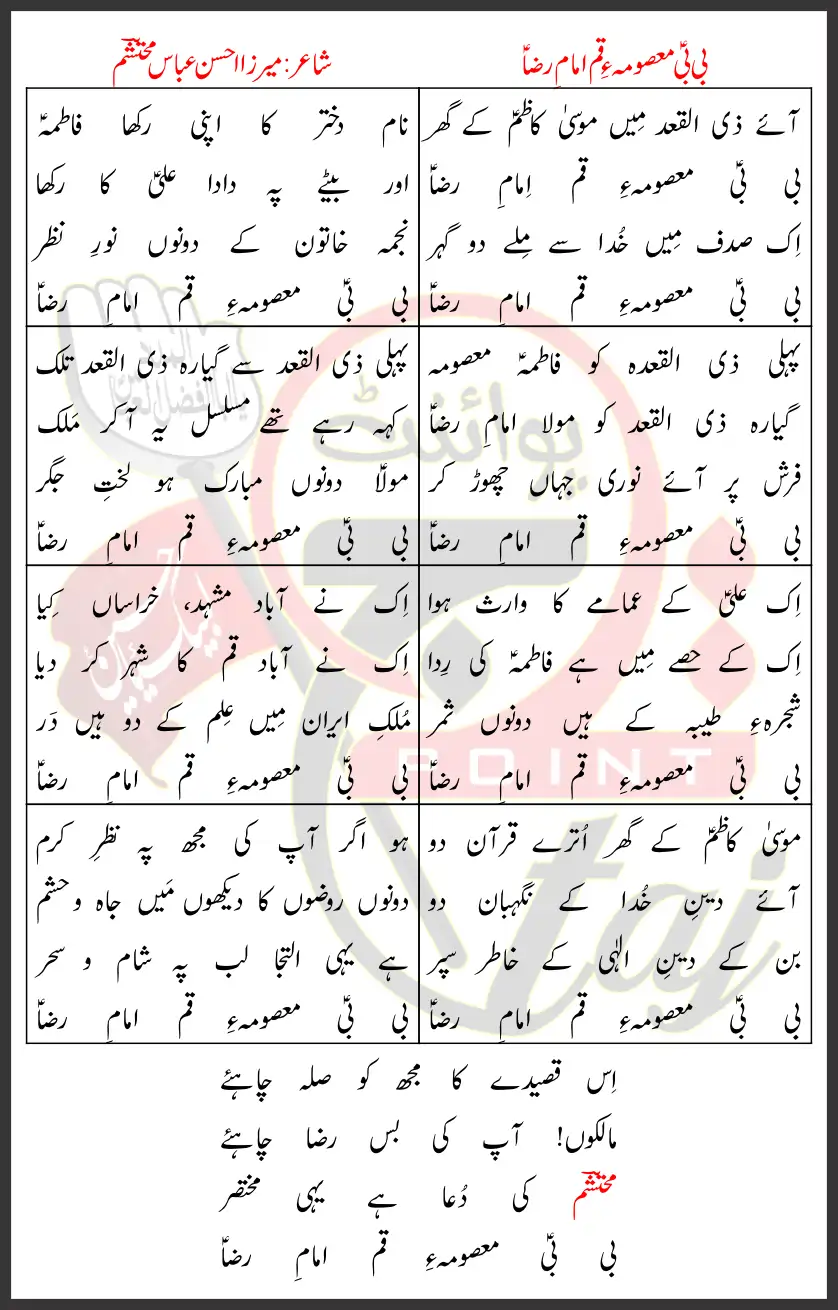 بی بیؑ معصومہءِ قم امامِ رضاؑ
شاعر: میرزا احسن عباس محتشؔم
آئے ذی القعد مِیں موسیٰ کاظمؑ کے گھر
بی بیؑ معصومہءِ قم اِمامِ رضاؑ
اِک صدف مِیں خُدا سے مِلے دو گہر
بی بیؑ معصومہءِ قم امامِ رضاؑ
نام دختر کا اپنی رکھا فاطمہؑ
اور بیٹے پہ دادا علیؑ کا رکھا
نجمہ خاتون کے دونوں نورِ نظر
بی بیؑ معصومہءِ قم امامِ رضاؑ
پہلی ذی القعدہ کو فاطمہؑ معصومہ
گیارہ ذی القعد کو مولا امامِ رضاؑ
فرش پر آئے نوری جہاں چھوڑ کر
بی بیؑ معصومہءِ قم امامِ رضاؑ
پہلی ذی القعد سے گیارہ ذی القعد تلک
کہہ رہے تھے مسلسل یہ آ کر مَلک
مولاؑ دونوں مبارک ہو لختِ جگر
بی بیؑ معصومہءِ قم امامِ رضاؑ
اِک علیؑ کے عمامے کا وارث ہوا
اِک کے حصے مِیں ہے فاطمہؑ کی رِدا
شجرہءِ طیبہ کے ہیں دونوں ثمر
بی بیؑ معصومہءِ قم امامِ رضاؑ
اِک نے آباد مشہد، خراساں کِیا
اِک نے آباد قم کا شہر کر دیا
مُلکِ ایران مِیں عِلم کے دو ہیں دَر
بی بیؑ معصومہءِ قم امامِ رضاؑ
موسیٰ کاظمؑ کے گھر اُترے قرآن دو
آئے دینِ خُدا کے نگہبان دو
بن کے دینِ الٰہی کے خاطر سپر
بی بیؑ معصومہءِ قم امامِ رضاؑ
ہو اگر آپ کی مجھ پہ نظرِ کرم
دونوں روضوں کا دیکھوں مَیں جاہ و حشم
ہے یہی التجا لب پہ شام و سحر
بی بیؑ معصومہءِ قم امامِ رضاؑ
اِس قصیدے کا مجھ کو صلہ چاہئے
مالکوں! آپ کی بس رضا چاہئے
محتشؔم کی دُعا ہے یہی مختصر
بی بیؑ معصومہءِ قم امامِ رضاؑ
پوائنٹ
POINT
taj